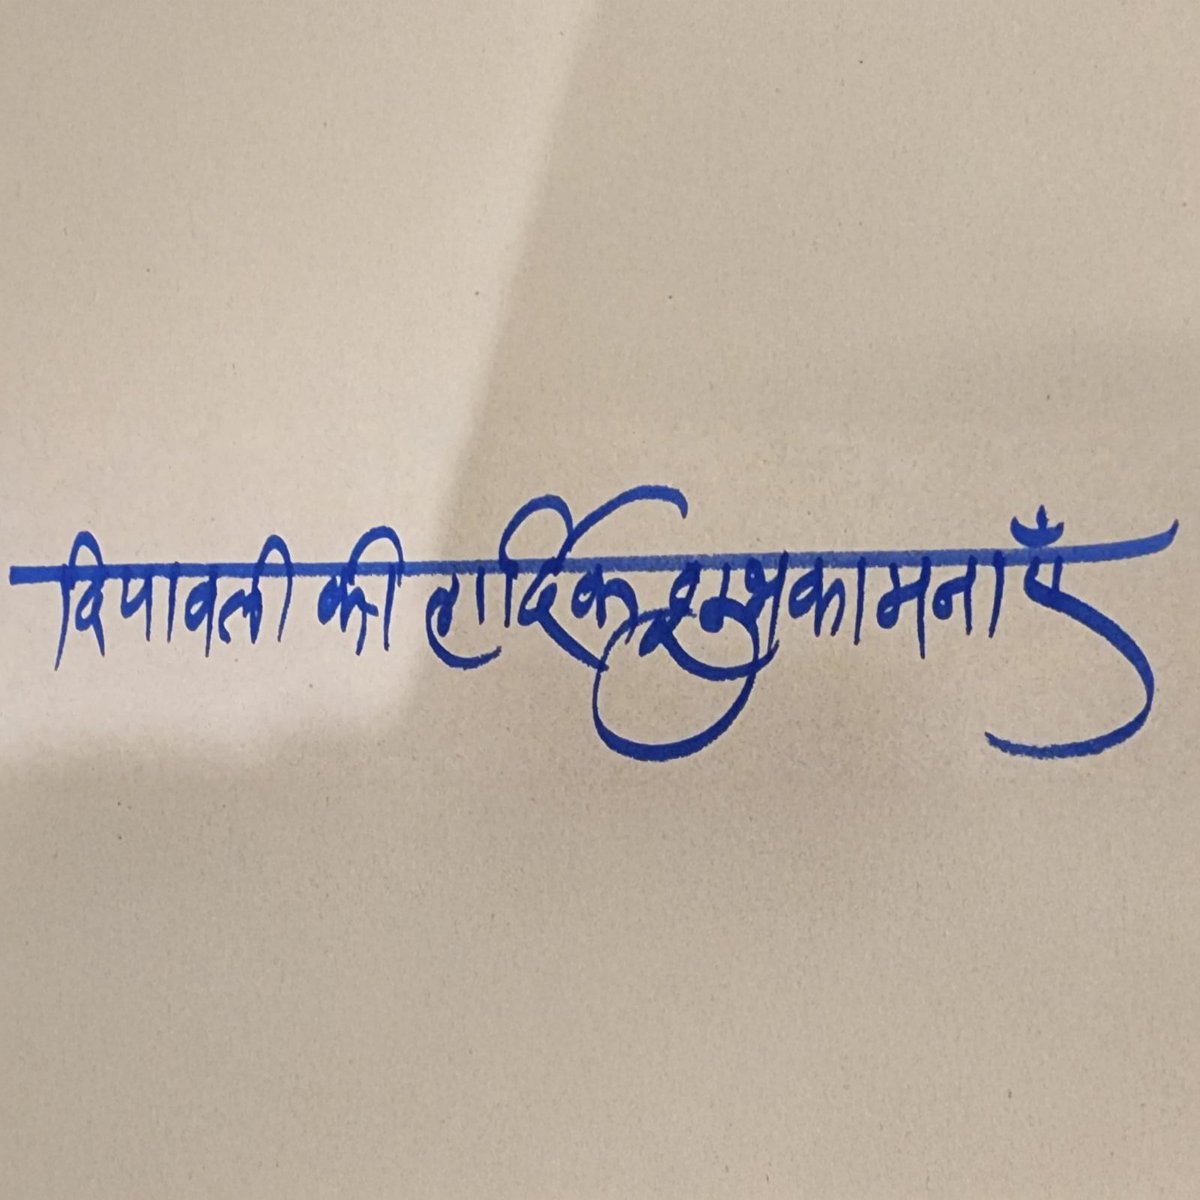 दिपावली की हार्दिक शुभकामनाएँ